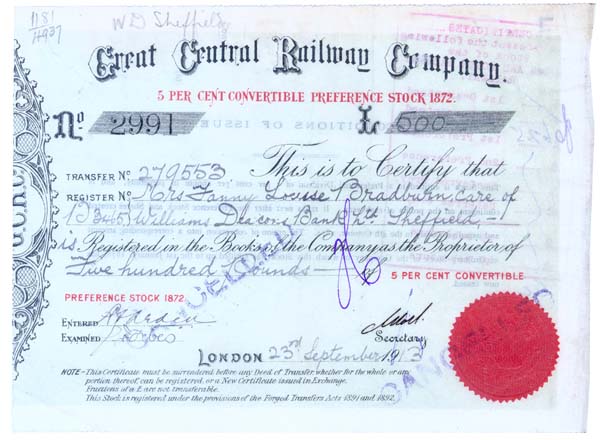 1181
4937
W D Sheffield
Great Central Railway Company.
5 PER CENT CONVERTIBLE PREFERENCE STOCK 1872.
No 2991 £ 500
TRANSFER No. 279553 This is to Certify that
REGISTER No. Mrs Fanny Louise Bradburn, care of
B 345 Williams Deacons Bank Ltd. Sheffield
is Registered in the Books of the Company as the Proprietor of
Five hundred Pounds of 5 PER CENT CONVERTIBLE
PREFERENCE STOCK 1872.
ENTERED
EXAMINED
Secretary
LONDON 23rd September 1913
CANCELLED
NOTE - This Certificate must be surrendered before any Deed of Transfer whether for the whole or any
portion thereof, can be registered, or a New Certificate issued in Exchange.
Fractions of a £ are not transferable.
This Stock is registered under the provisions of the Forged Transfers Acts 1891 and 1892.
G.C.R.C.